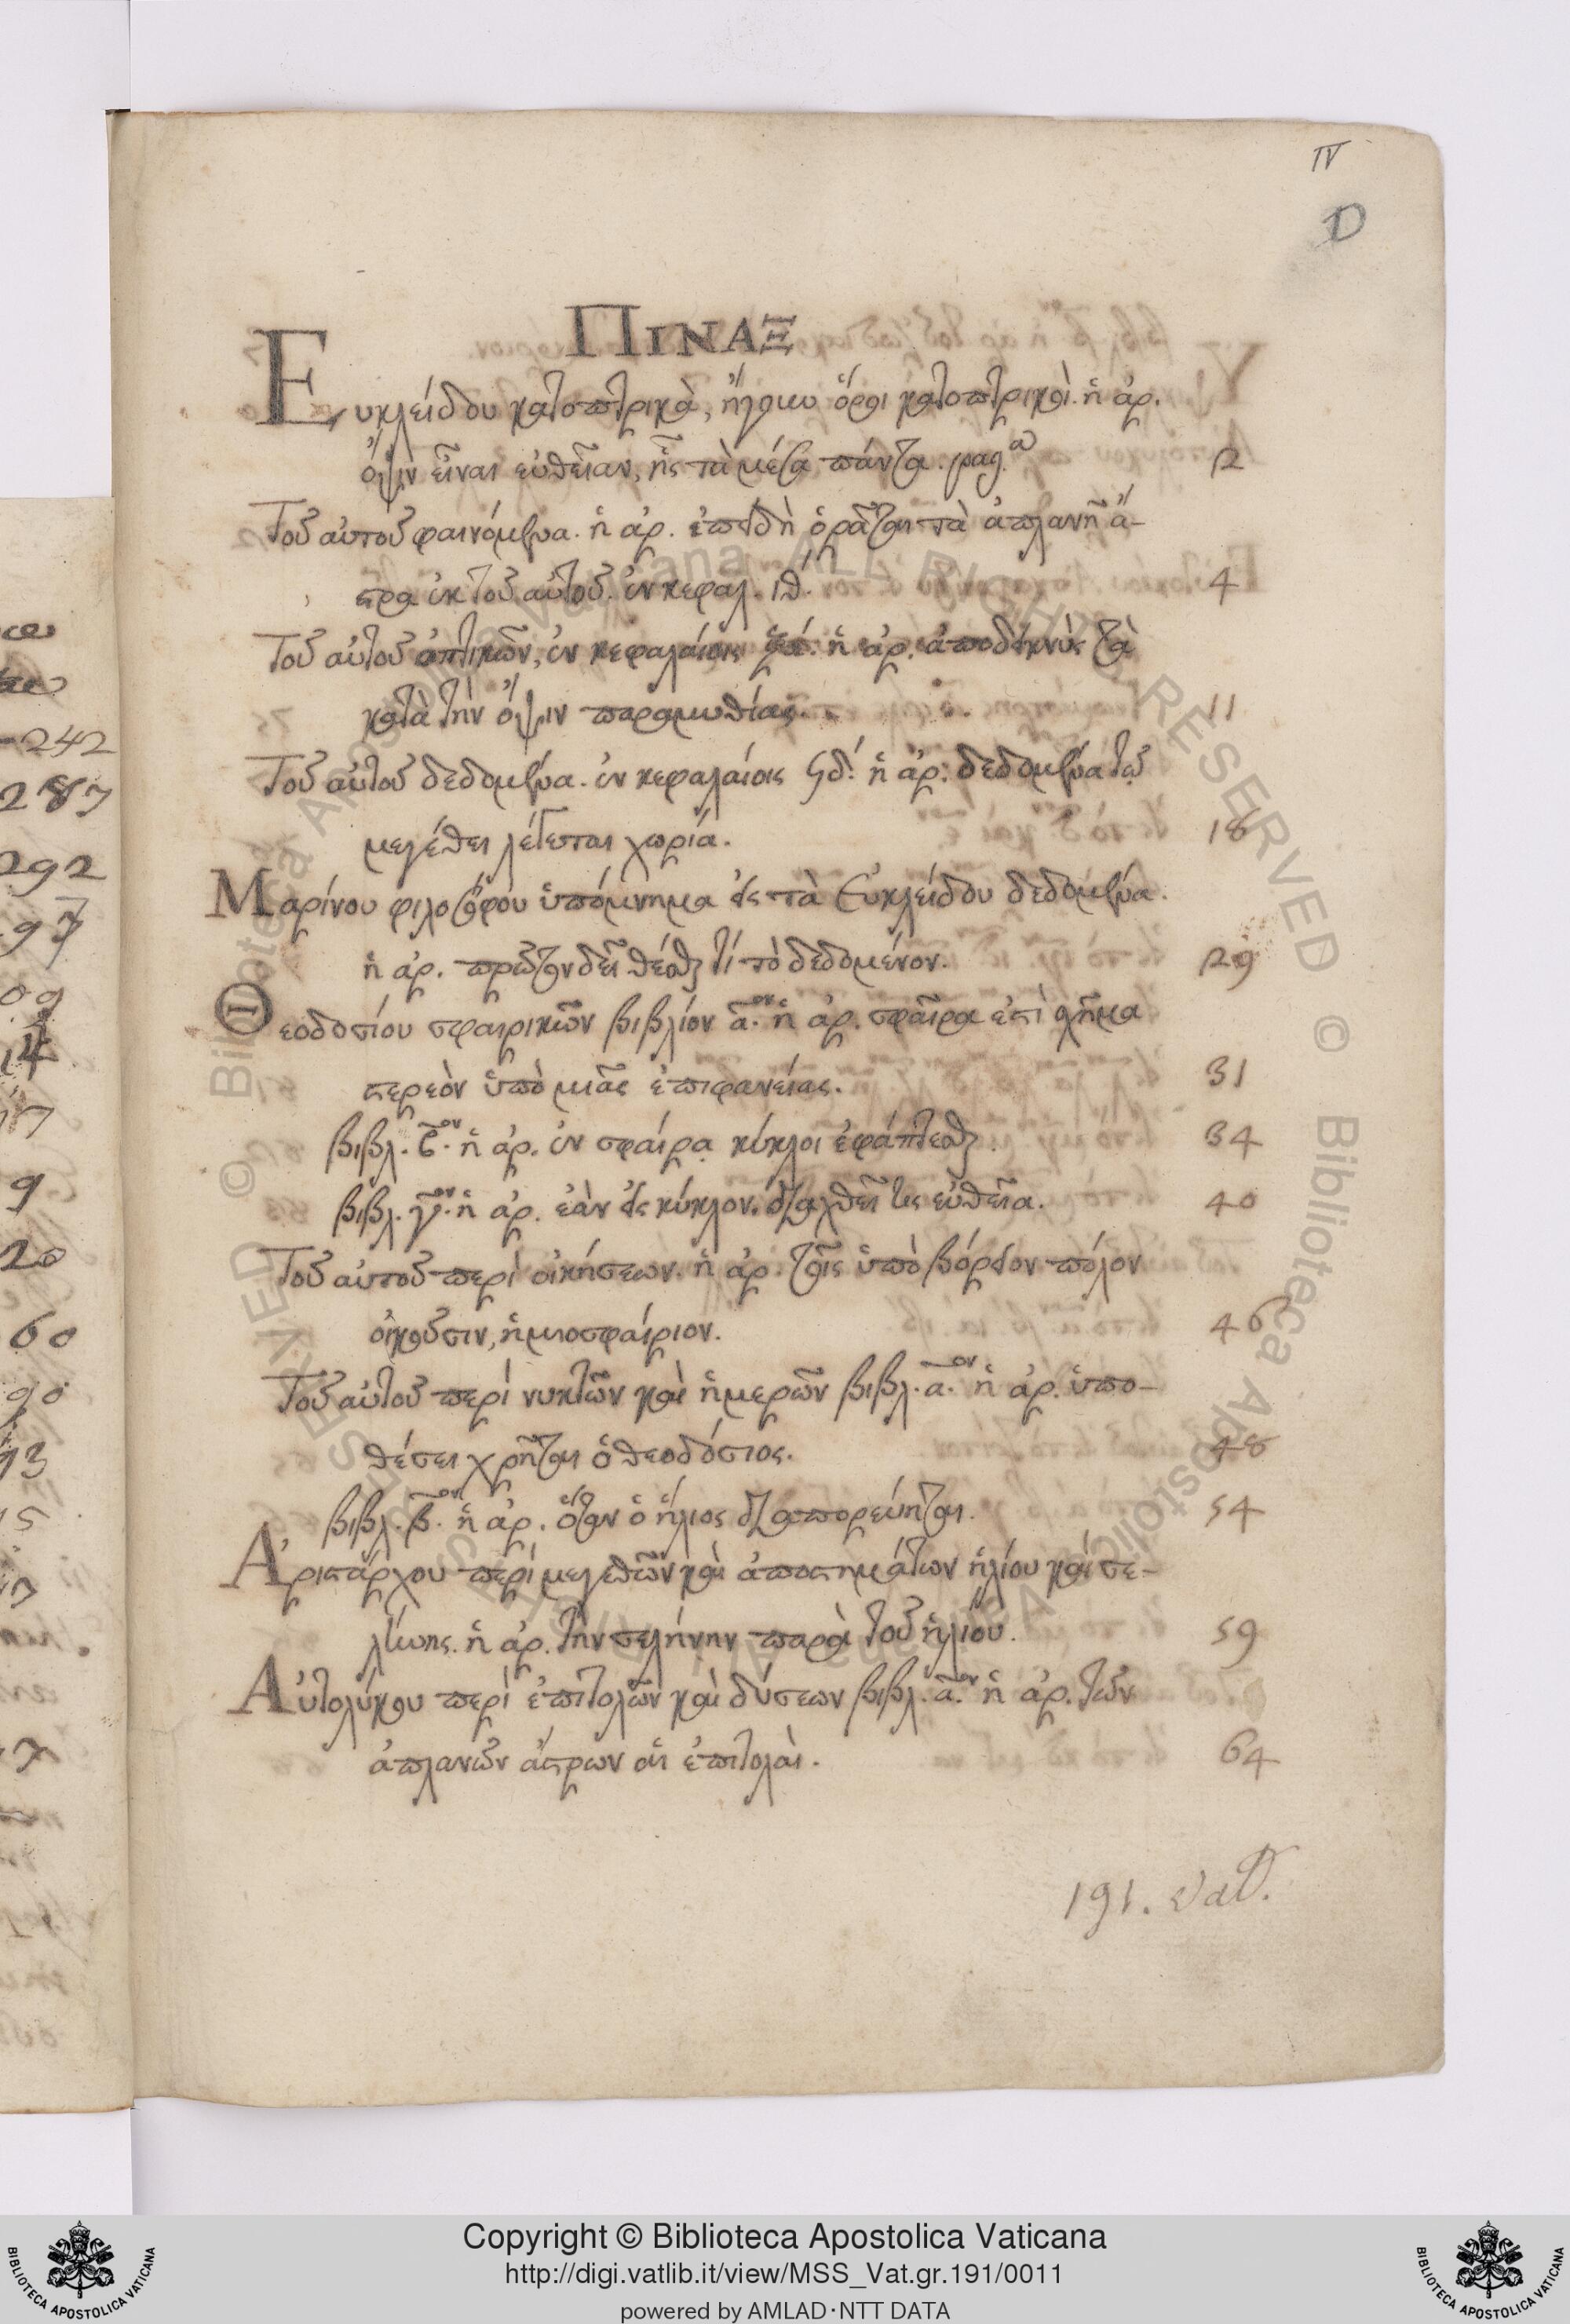 IV
D
ΠΙΝΑΞ
Εὐκλείδου κατοπτρικὰ, ἤγουν ὅροι κατοπτρικοὶ. ἡ ἀρ.
ὄψιν εἶναι εὐθεῖαν, ἧς τὰ μέσα πάντα. 2
Τοῦ αὐτοῦ φαινόμενα. ἡ ἀρ. ἐπειδὴ ὁρᾶται τὰ ἀπλανῆ ἄ-
στρα ἐκ τοῦ αὐτοῦ. ἐν κεφαλ. ιθ΄. 4
Τοῦ αὐτοῦ ὀπτικῶν, ἐν κεφαλαίοις ἡ ἀρ. ἀποδεικνὺς τὰ
κατὰ τὴν ὄψιν παραμυθίας. 11
Τοῦ αὐτοῦ δεδομένα. ἐν κεφαλαίοις ϟδ΄. ἡ ἀρ. δεδομένα τῷ
μεγέθει λέγεται χωρία. 18
Μαρίνου φιλοσόφου ὑπόμνημα εἰς τὰ Εὐκλείδου δεδομένα.
ἡ ἀρ. πρῶτον δεῖ θέσθαι τί τὸ δεδομένον. 29
Θεοδοσίου σφαιρικῶν βιβλίον α.ον ἡ ἀρ. σφαῖρα ἐστὶ σχῆμα
στερεὸν ὑπὸ μιᾶς ἐπιφανείας. 31
βιβλ. β.ον ἡ ἀρ. ἐν σφαίρᾳ κύκλοι ἐφάπτεσθαι. 34
βιβλ. γ.ον ἡ ἀρ. ἐὰν εἰς κύκλον. διαχθεῖ τις εὐθεῖα. 40
Τοῦ αὐτοῦ περὶ οἰκήσεων. ἡ ἀρ. τοῖς ὑπὸ βόρειον πόλον
οἰκοῦσιν, ἡμισφαίριον. 46
Τοῦ αὐτοῦ περὶ νυκτῶν καὶ ἡμερῶν βιβλ. α.ον ἡ ἀρ. ὑπο-
θέσει χρῆται ὁ θεοδόσιος. 48
βιβλ. β.ον ἡ ἀρ. ὅταν ὁ ἥλιος διαπορεύηται. 54
Ἀριστάρχου περὶ μεγεθῶν καὶ ἀποστημάτων ἡλίου καὶ σε-
λήνης. ἡ ἀρ. τὴν σελήνην παρὰ τοῦ ἡλίου. 59
Αὐτολύκου περὶ ἐπιτολῶν καὶ δύσεων βιβλ. α.ον ἡ ἀρ. τῶν
ἀπλανῶν ἄστρων αἱ ἐπιτολαὶ. 64
191. Vat.
242
287
292
20
60
Copyright © Biblioteca Apostolica Vaticana
http://digi.vatlib.it/view/MSS_Vat.gr.191/0011
powered by AMLAD·NTT DATA